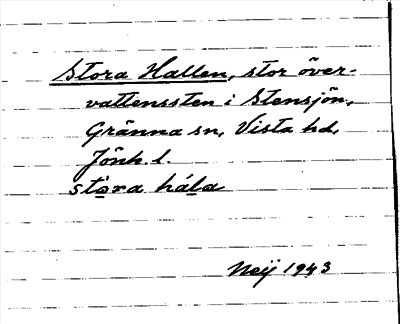 Stora Hallen, stor över-
vattenssten i Stensjön,
Gränna sn, Vista hd,
Jönk. l.
stòra hála
Neij 1943